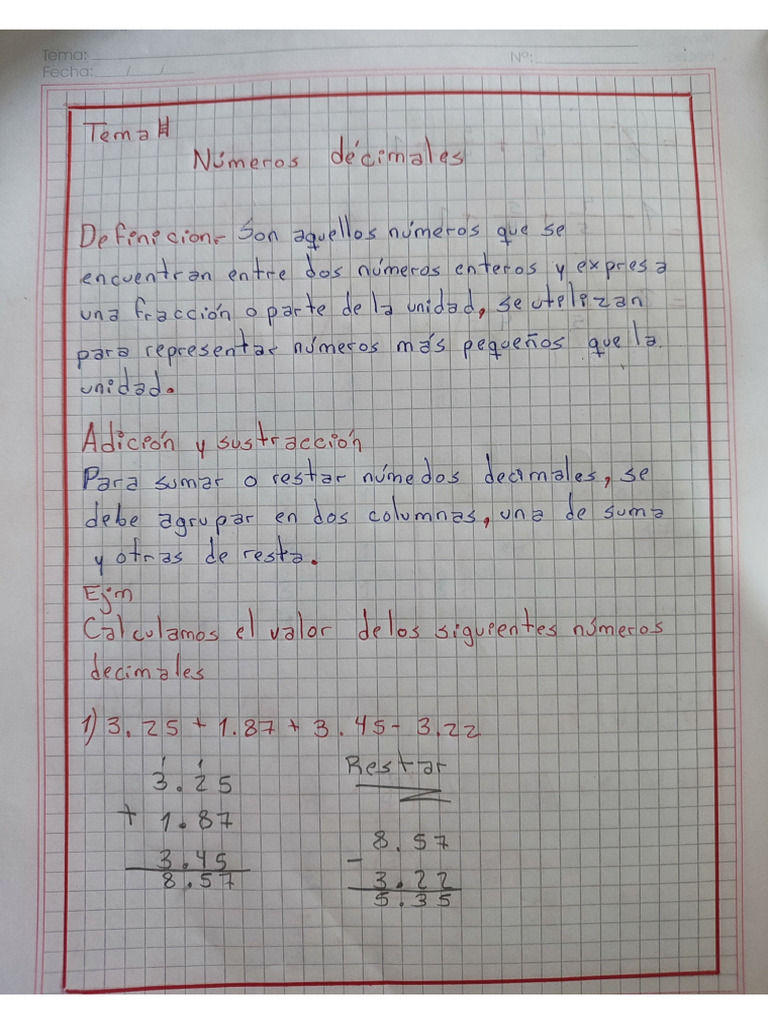 Tema: Nº:
Fecha: / /
Tema
Números décimales
Definicion.- Son aquellos números que se
encuentran entre dos números enteros y expresa
una fracción o parte de la unidad, se utilizan
para representar números más pequeños que la
unidad.
Adición y sustracción
Para sumar o restar númedos decimales, se
debe agrupar en dos columnas, una de suma
y otras de resta.
Ejm
Calculamos el valor delos siguientes números
decimales
1) 3.25 + 1.87 + 3.45 - 3.22
1 1
3.25
+ 1.87
3.45
8.57
Restar
8.57
-
3.22
5.35